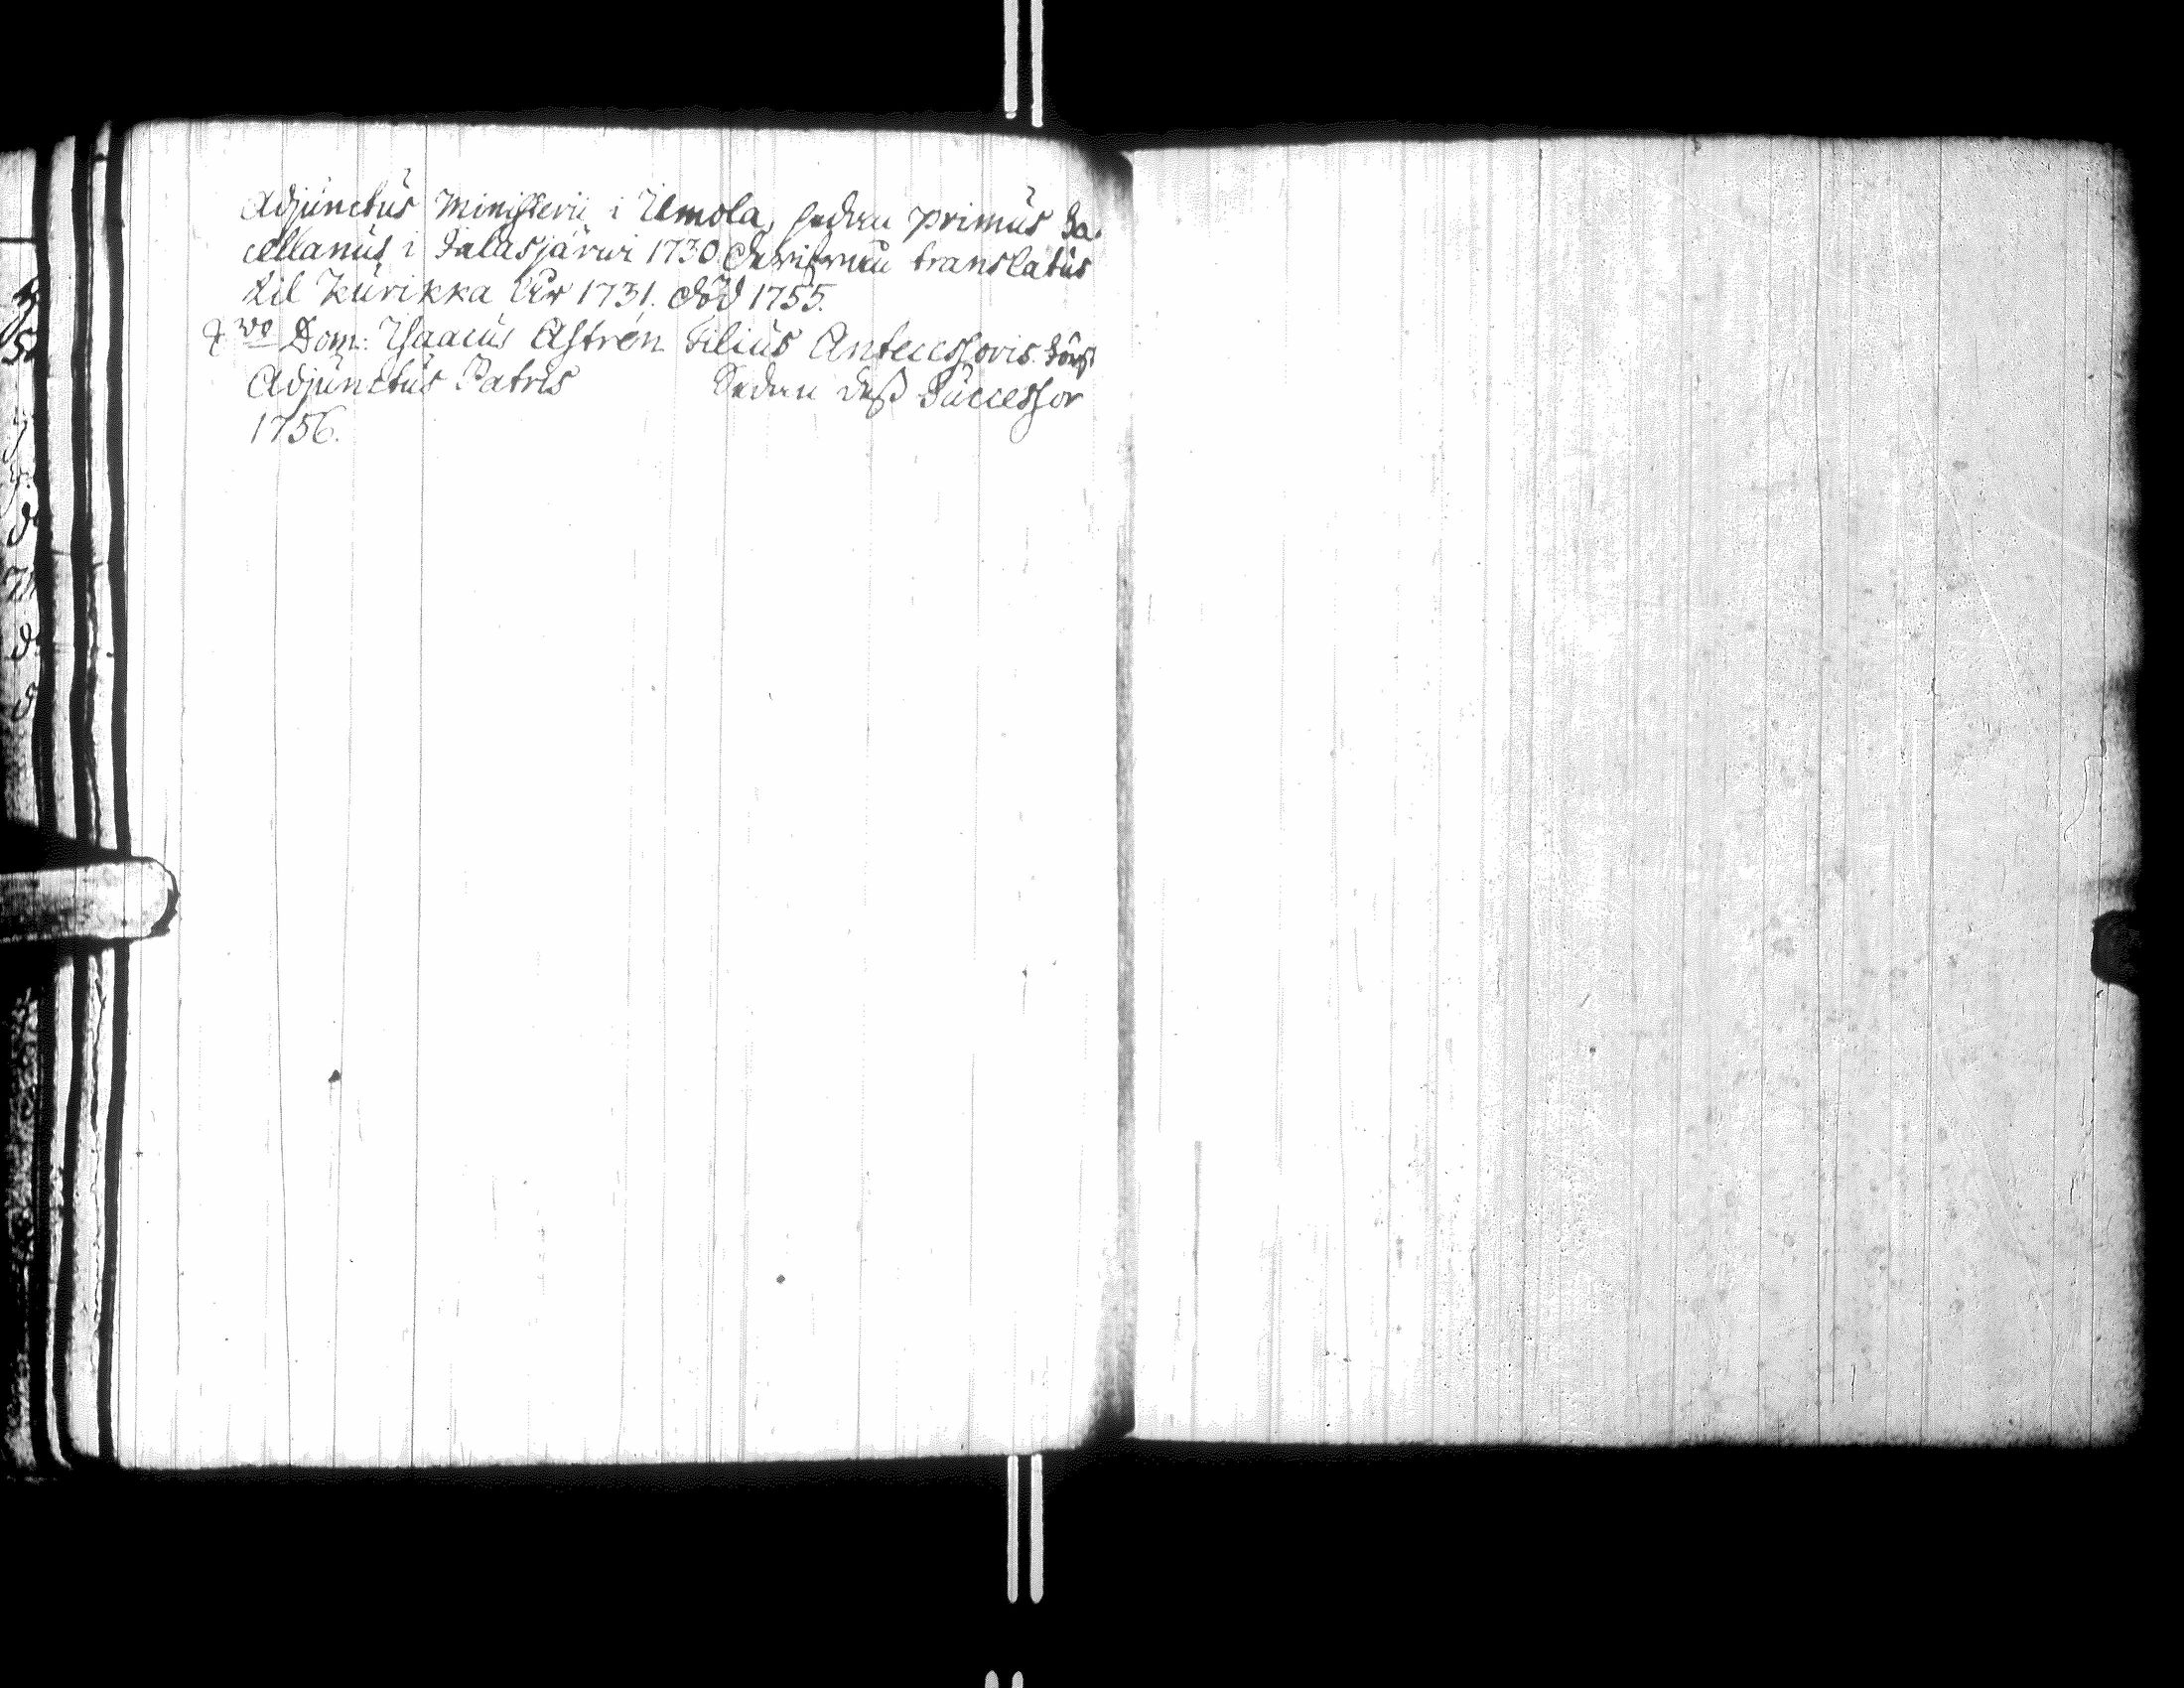 Adjunctus Ministerii i Ilmola, sedan primus Sa-
cellanus i Jalasjärwi 1730. Derifrån translatus
til Kurikka År 1731. död 1755.
Dom: Isaacus Astrén Filius Antecessoris. först
Adjunctus Patris Sedan deß Successor
1756.